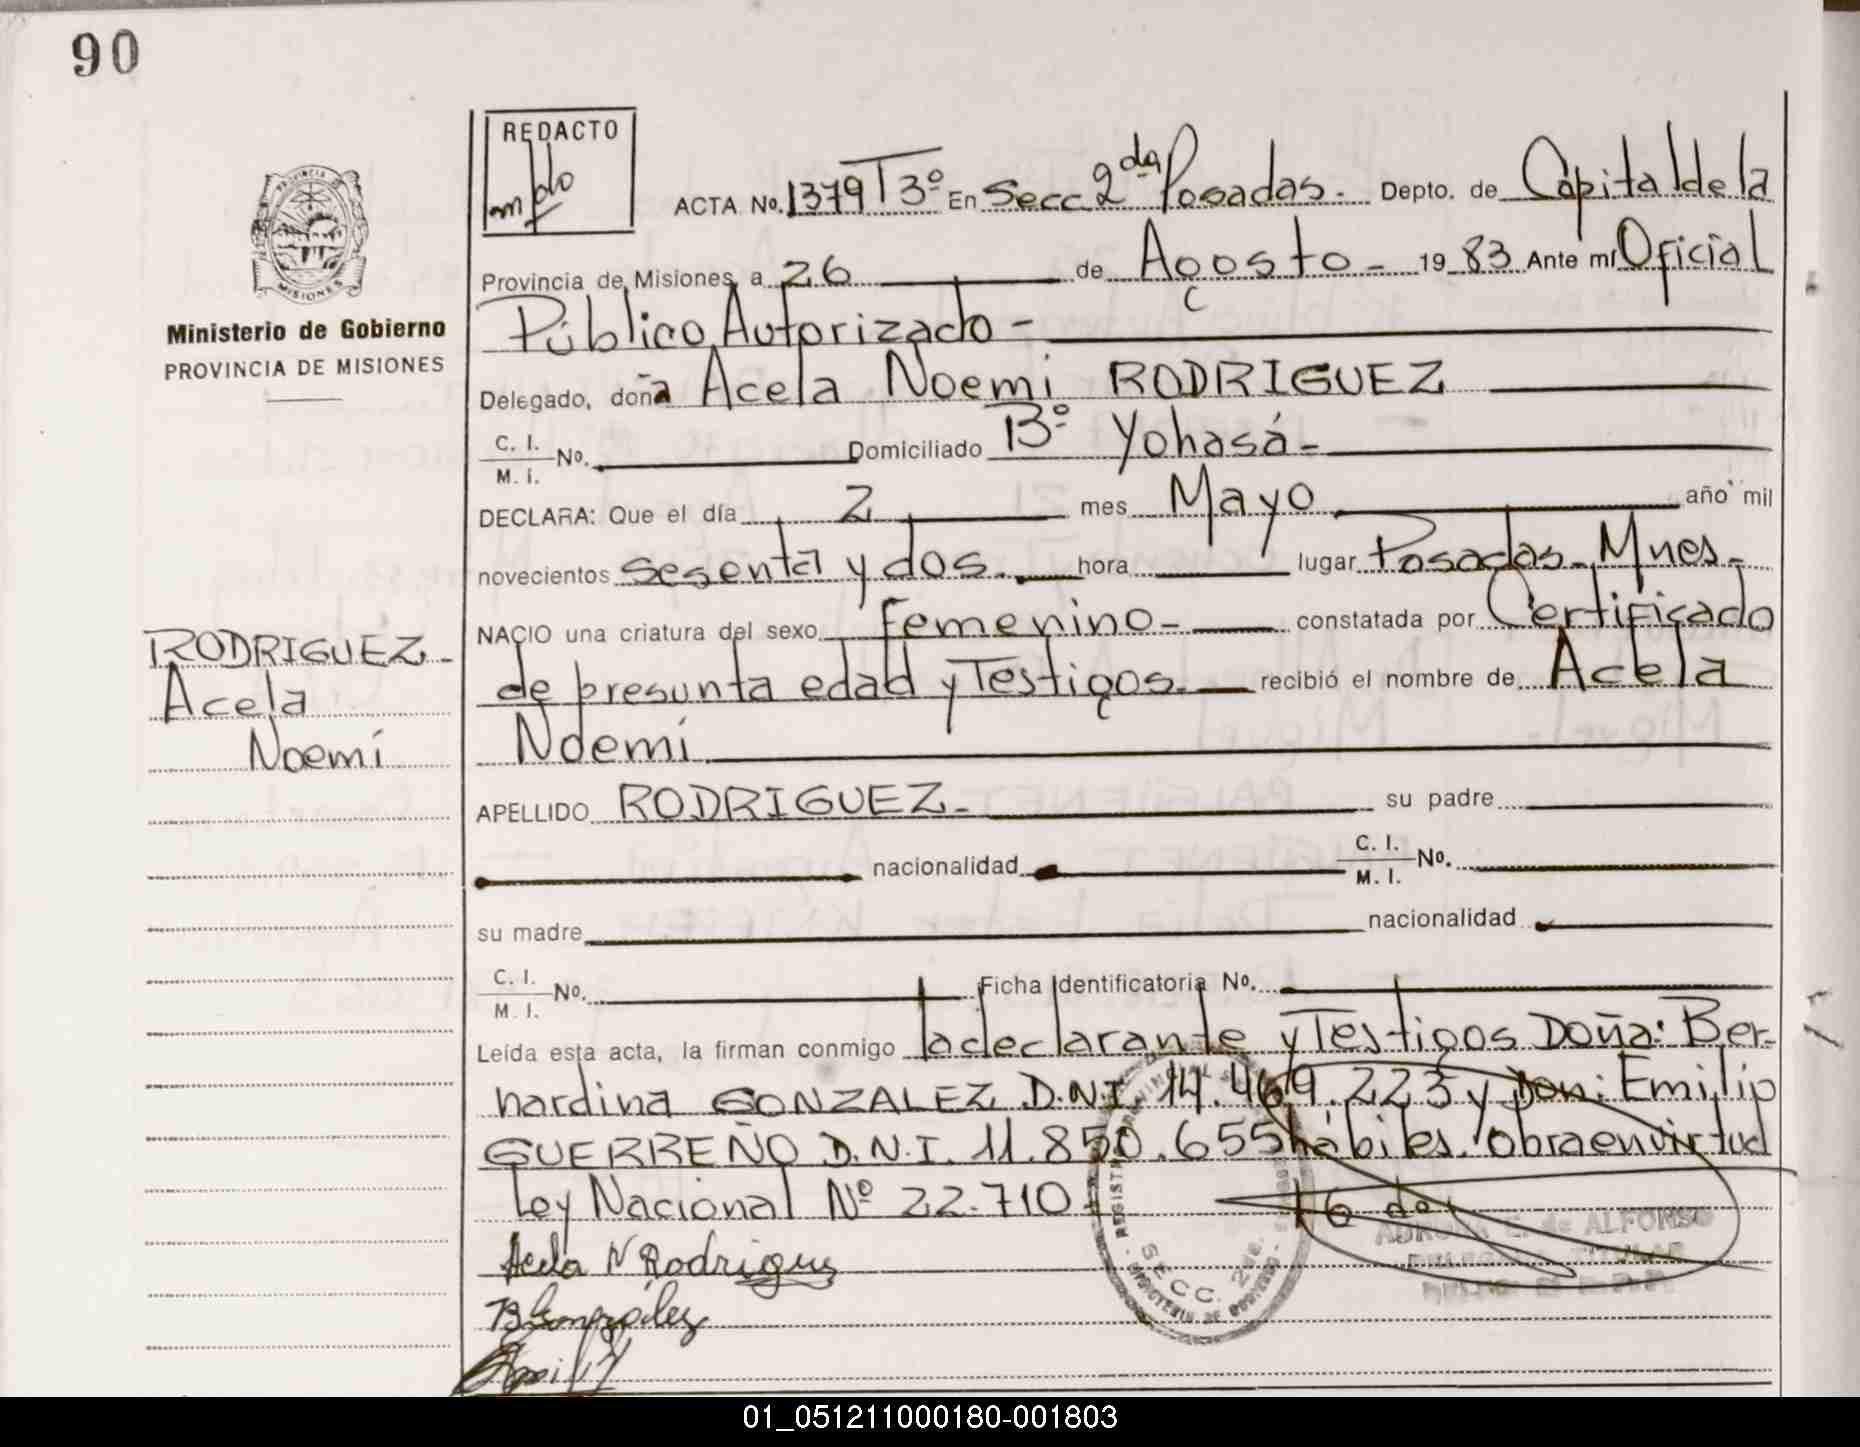 90
REDACTO
ACTA No. 1379 T 3º En Secc 2da Posadas. Depto. de Capital de la
Provincia de Misiones, a 26 de Agosto - 19 83 Ante mí Oficial
Público Autorizado -
Delegado, doña Acela Noemi RODRIGUEZ
C. I.
M. I. No. Domiciliado Bº Yohasá -
DECLARA: Que el día 2 mes Mayo año mil
novecientos sesenta y dos. hora lugar Posadas. Mnes -
NACIO una criatura del sexo femenino - constatada por Certificado
de presunta edad y Testigos. recibió el nombre de Acela
Noemí
APELLIDO RODRIGUEZ - su padre
nacionalidad C. I.
M. I. No.
su madre nacionalidad
C. I.
M. I. No. Ficha Identificatoria No.
Leída esta acta, la firman conmigo la declarante y Testigos Doña: Ber-
nardina GONZALEZ D.N.I. 14.469.223 y Don: Emilio
GUERREÑO D.N.I. 11.850.655 hábiles. Obra en virtud
Ley Nacional Nº 22.710
Acela N Rodrigues
B Gonzáles
PROVINCIA
MISIONES
Ministerio de Gobierno
PROVINCIA DE MISIONES
RODRIGUEZ -
Acela
Noemí
SECC. 2da.
E. de ALFONSO
DELEGADA TITULAR
01_051211000180-001803